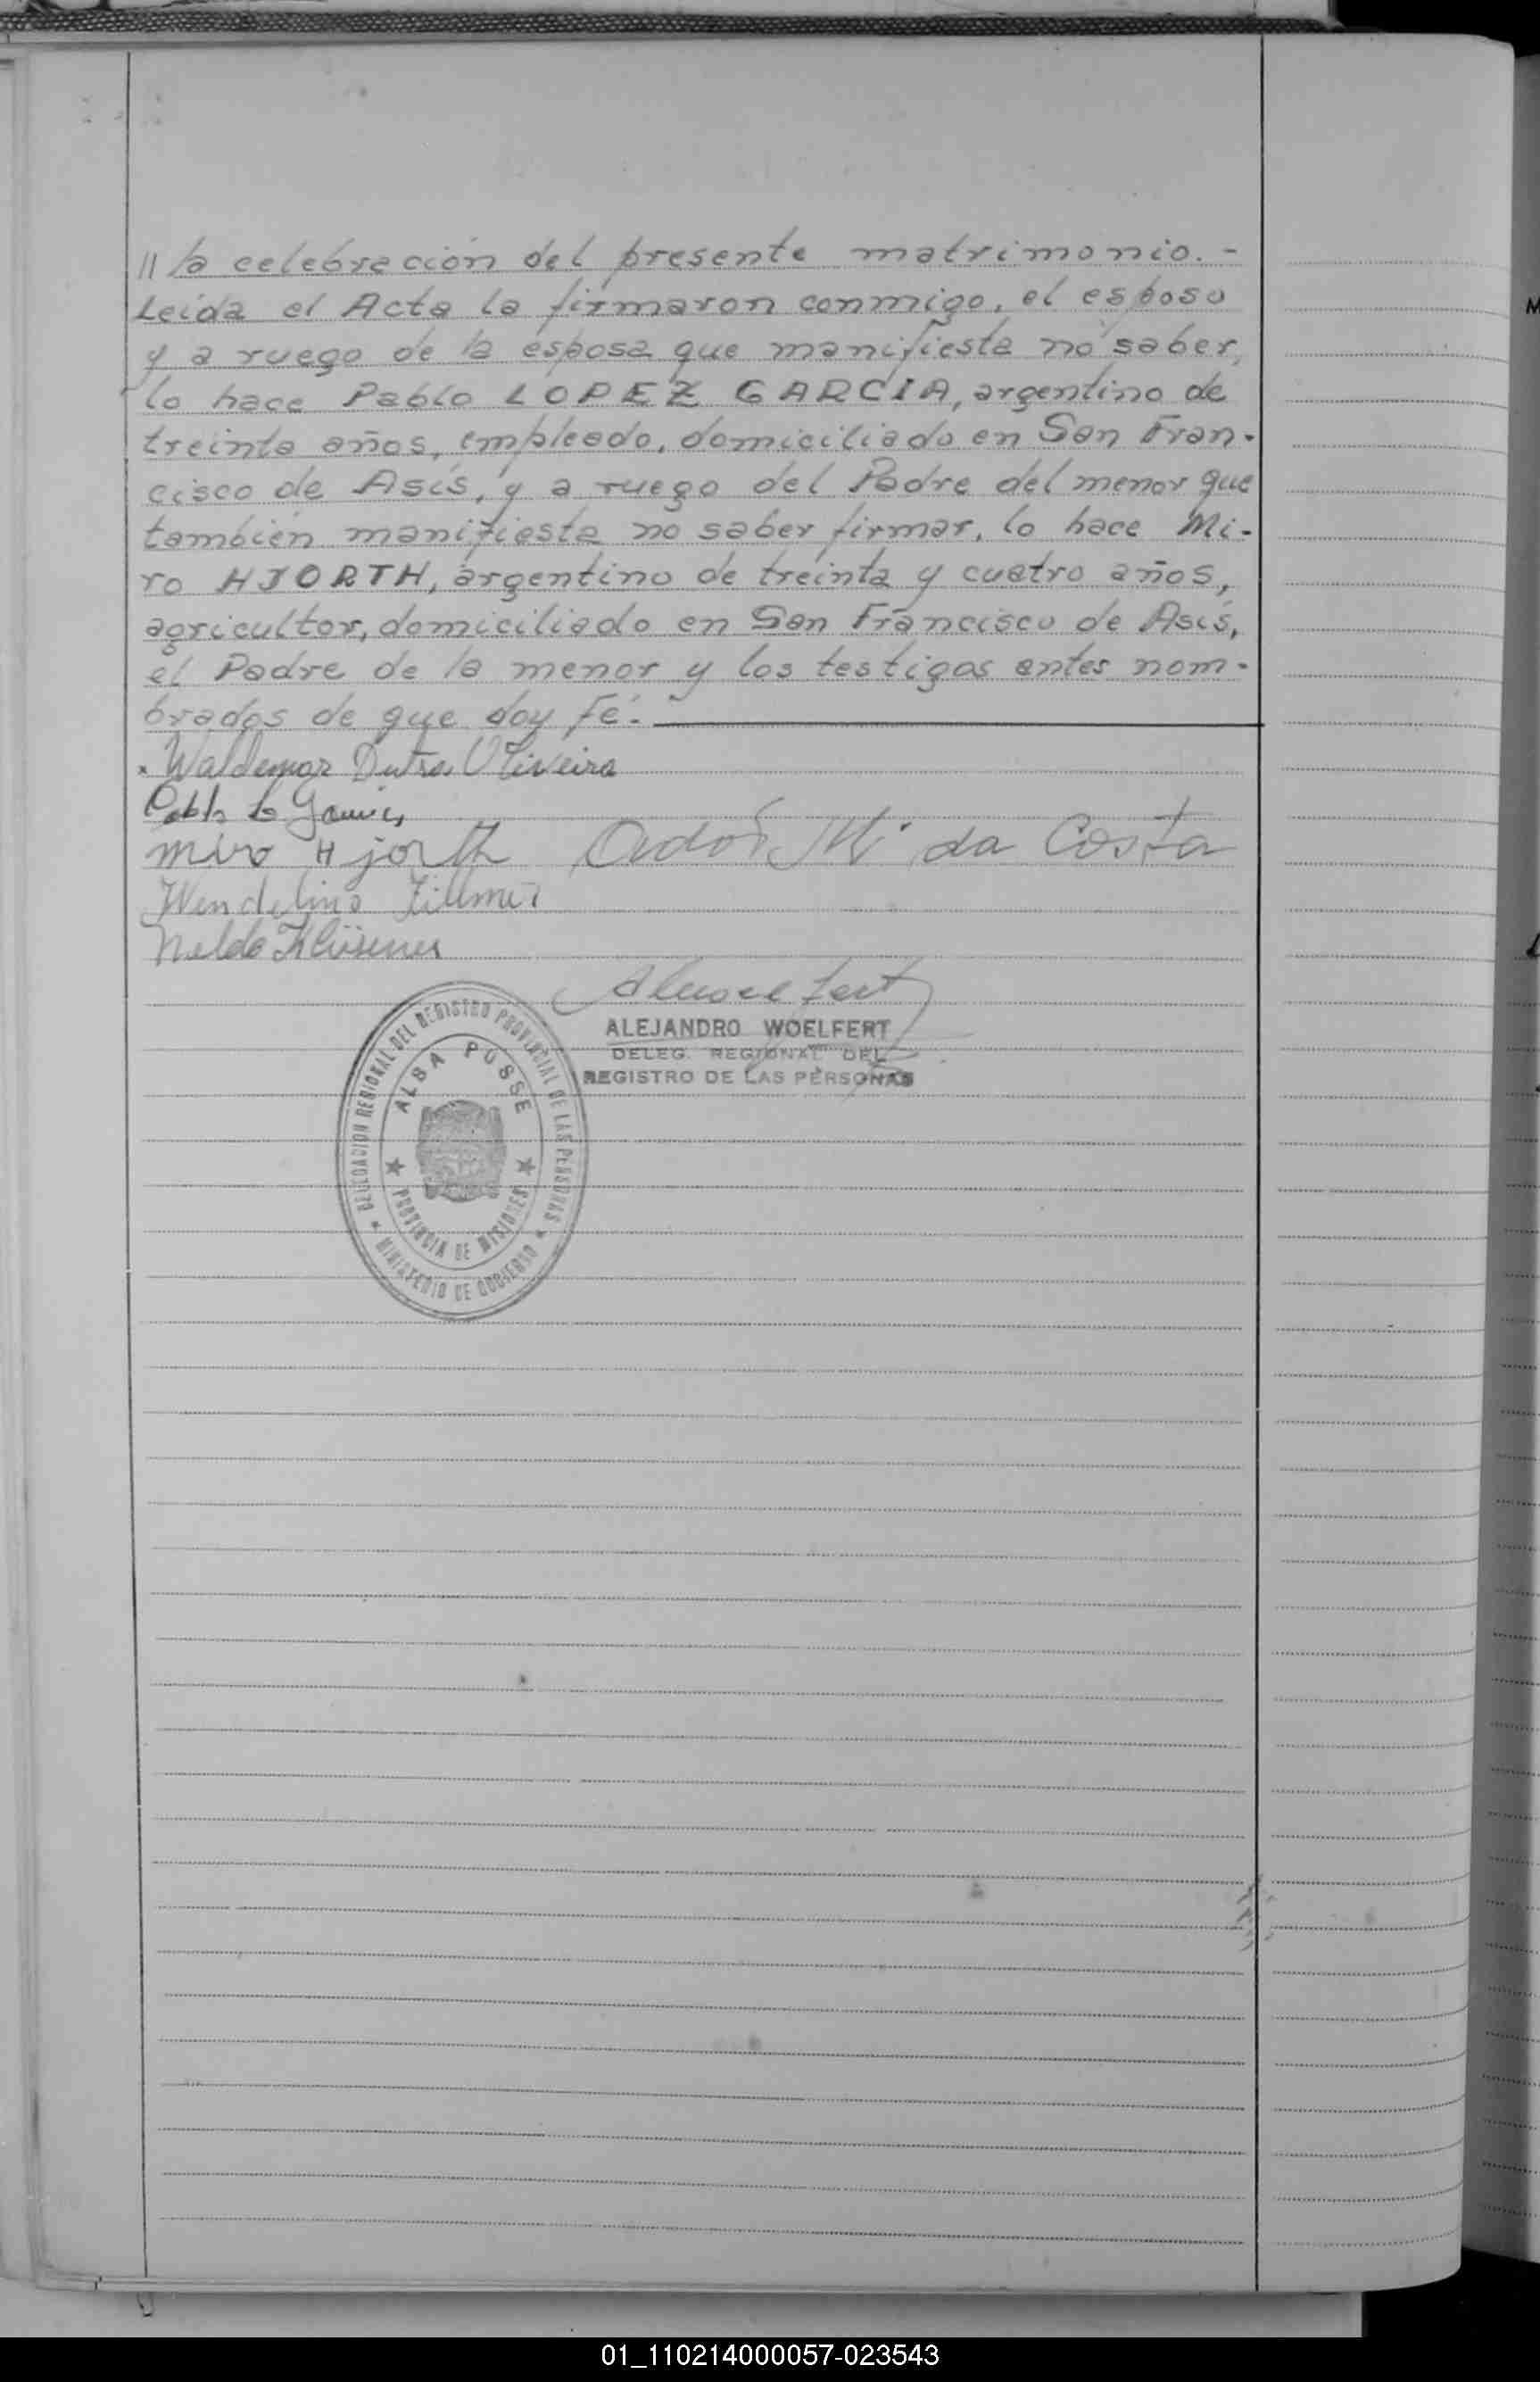 // la celebración del presente matrimonio.-
Leída el Acta la firmaron conmigo, el esposo
y a ruego de la esposa que manifiesta no saber,
lo hace Pablo LOPEZ GARCIA, argentino de
treinta años, empleado, domiciliado en San Fran-
cisco de Asís, y a ruego del Padre del menor que
también manifiesta no saber firmar, lo hace Mi-
ro HJORTH, argentino de treinta y cuatro años,
agricultor, domiciliado en San Francisco de Asís,
el Padre de la menor y los testigos antes nom-
brados de que doy fé.-
Waldemar Dutra Oliveira
Pablo L Garcia
Miro Hjorth M. da Costa
Wendelino
Nelda
ALEJANDRO WOELFERT
DELEG. REGIONAL DEL
REGISTRO DE LAS PERSONAS
DELEGACION REGIONAL DEL REGISTRO PROVINCIAL DE LAS PERSONAS
ALBA POSSE
PROVINCIA DE MISIONES
MINISTERIO DE GOBIERNO
01_110214000057-023543